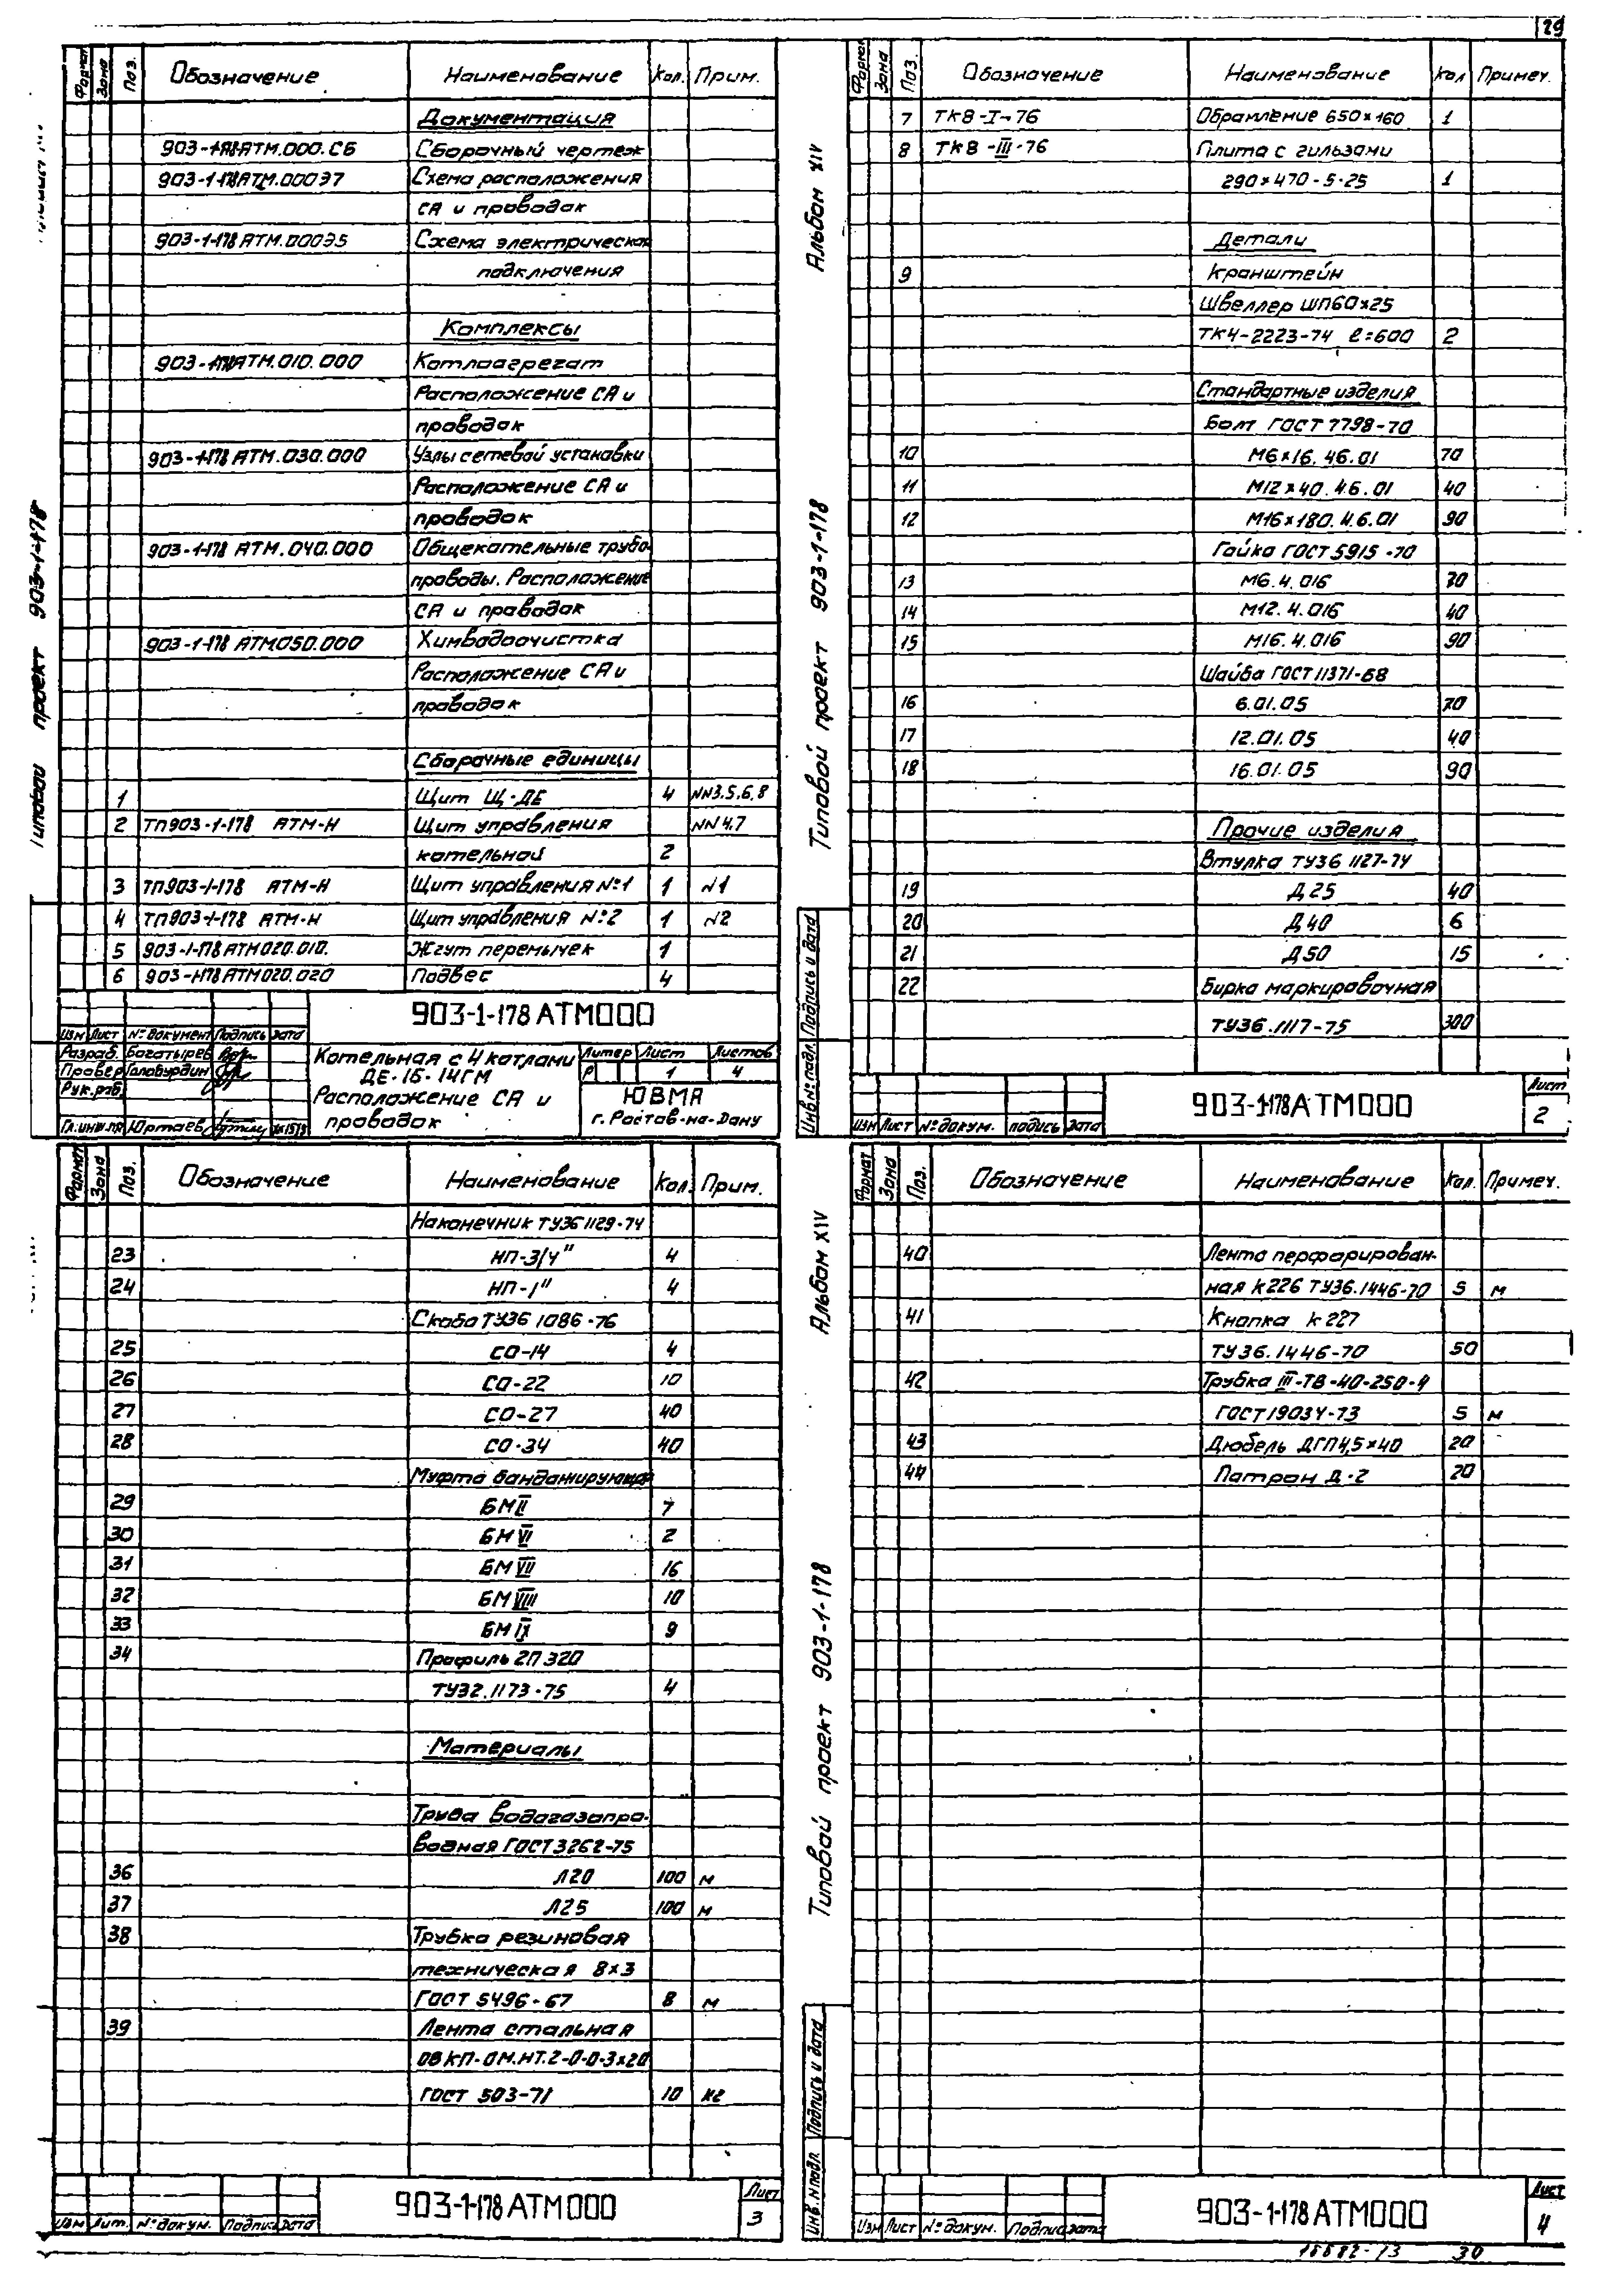 29
Формат Зона Поз. Обозначение Наименование Кол. Прим.
Документация
903-1-178АТМ.000.СБ Сборочный чертеж
903-1-178АТМ.000Э7 Схема расположения
СА и проводок
903-1-178АТМ.000Э5 Схема электрическая
подключения
Комплексы
903-1-178АТМ.010.000 Котлоагрегат
Расположение СА и
проводок
903-1-178 АТМ.030.000 Узлы сетевой установки
Расположение СА и
проводок
903-1-178 АТМ.040.000 Общекательные трубо-
проводы. Расположение
СА и проводок
903-1-178 АТМ050.000 Химводоочистка
Расположение СА и
проводок
Сборочные единицы
1 Щит Щ-ДЕ 4 NN3.5.6.8
2 ТП903-1-178 АТМ-Н Щит управления NN4.7
котельной 2
3 ТП903-1-178 АТМ-Н Щит управления №1 1 N1
4 ТП903-1-178 АТМ-Н Щит управления №2 1 N2
5 903-1-178АТМ020.010. Жгут перемычек 1
6 903-1-178АТМ020.020 Подвес 4
903-1-178 АТМ000
Изм Лист № документ Подпись Дата
Разраб. Богатырев
Провер Голобурдин
Рук.раб.
Гл.инж.пр Юртаев
Котельная с 4 котлами
ДЕ-16-14ГМ
Расположение СА и
проводок
Литер Лист Листов
Р 1 4
ЮВМА
г. Ростов-на-Дону
Типовой проект 903-1-178
Альбом XIV
Типовой проект 903-1-178
Инв.№ подл. Подпись и дата
Формат Зона Поз. Обозначение Наименование Кол Примеч.
7 ТК8-I-76 Обрамление 650×160 1
8 ТК8-III-76 Плита с гильзами
290×470-5-25 1
Детали
9 Кранштейн
Швеллер ШП60×25
ТК4-2223-74 l=600 2
Стандартные изделия
Болт ГОСТ 7798-70
10 М6×16.46.01 70
11 М12×40.46.01 40
12 М16×180.4.6.01 90
Гайка ГОСТ 5915-70
13 М6.4.016 70
14 М12.4.016 40
15 М16.4.016 90
Шайба ГОСТ 11371-68
16 6.01.05 70
17 12.01.05 40
18 16.01.05 90
Прочие изделия
Втулка ТУ36 1127-74
19 Д25 40
20 Д40 6
21 Д50 15
22 Бирка маркировочная
ТУ36.1117-75 300
Изм Лист № докум. подпись Дата
903-1-178АТМ000
Лист
2
Формат Зона Поз. Обозначение Наименование Кол. Прим.
Наконечник ТУ36 1129-74
23 НП-3/4" 4
24 НП-1" 4
Скоба ТУ36 1086-76
25 СО-14 4
26 СО-22 10
27 СО-27 40
28 СО-34 40
Муфта бандажирующая
29 БМII 7
30 БМVI 2
31 БМVII 16
32 БМVIII 10
33 БМIX 9
34 Профиль 2П320
ТУ32.1173-75 4
Материалы
Труба водогазопро-
водная ГОСТ 3262-75
36 Л20 100 м
37 Л25 100 м
38 Трубка резиновая
техническая 8×3
ГОСТ 5496-67 8 м
39 Лента стальная
08КП-ОМ.НТ.2-0-0-3×20
ГОСТ 503-71 10 кг
Изм Лит. № докум. Подпис Дата
903-1-178АТМ000
Лист
3
Альбом XIV
Типовой проект 903-1-178
Инв.№подл. Подпись и дата
Формат Зона Поз. Обозначение Наименование Кол. Примеч.
40 Лента перфорирован-
ная К226 ТУ36.1446-70 5 м
41 Кнопка К227
ТУ36.1446-70 50
42 Трубка III-ТВ-40-250-4
ГОСТ19034-73 5 м
43 Дюбель ДГП4,5×40 20
44 Патрон Д-2 20
Изм Лист № докум. Подпись Дата
903-1-178АТМ000
Лист
4
30